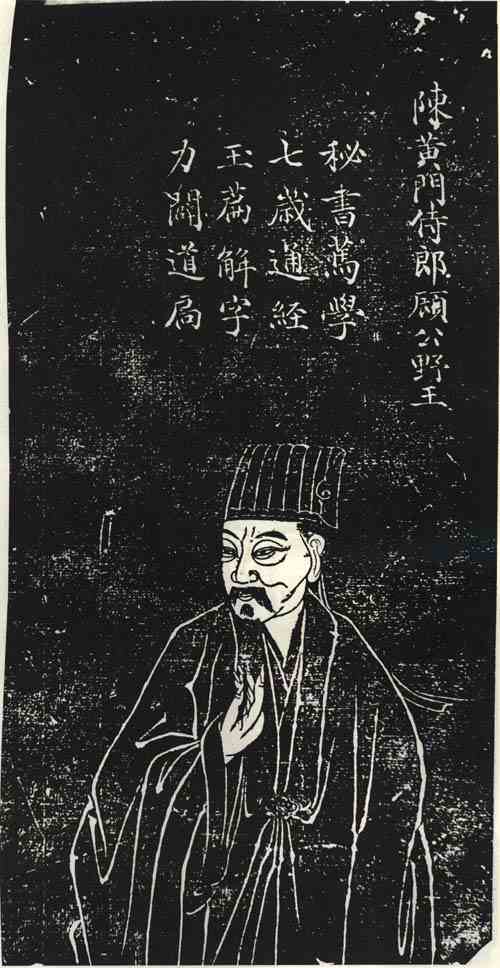 陳黃門侍郎顧公野王
秘書篤學
七歲通経
玉篇解字
力闢道扃